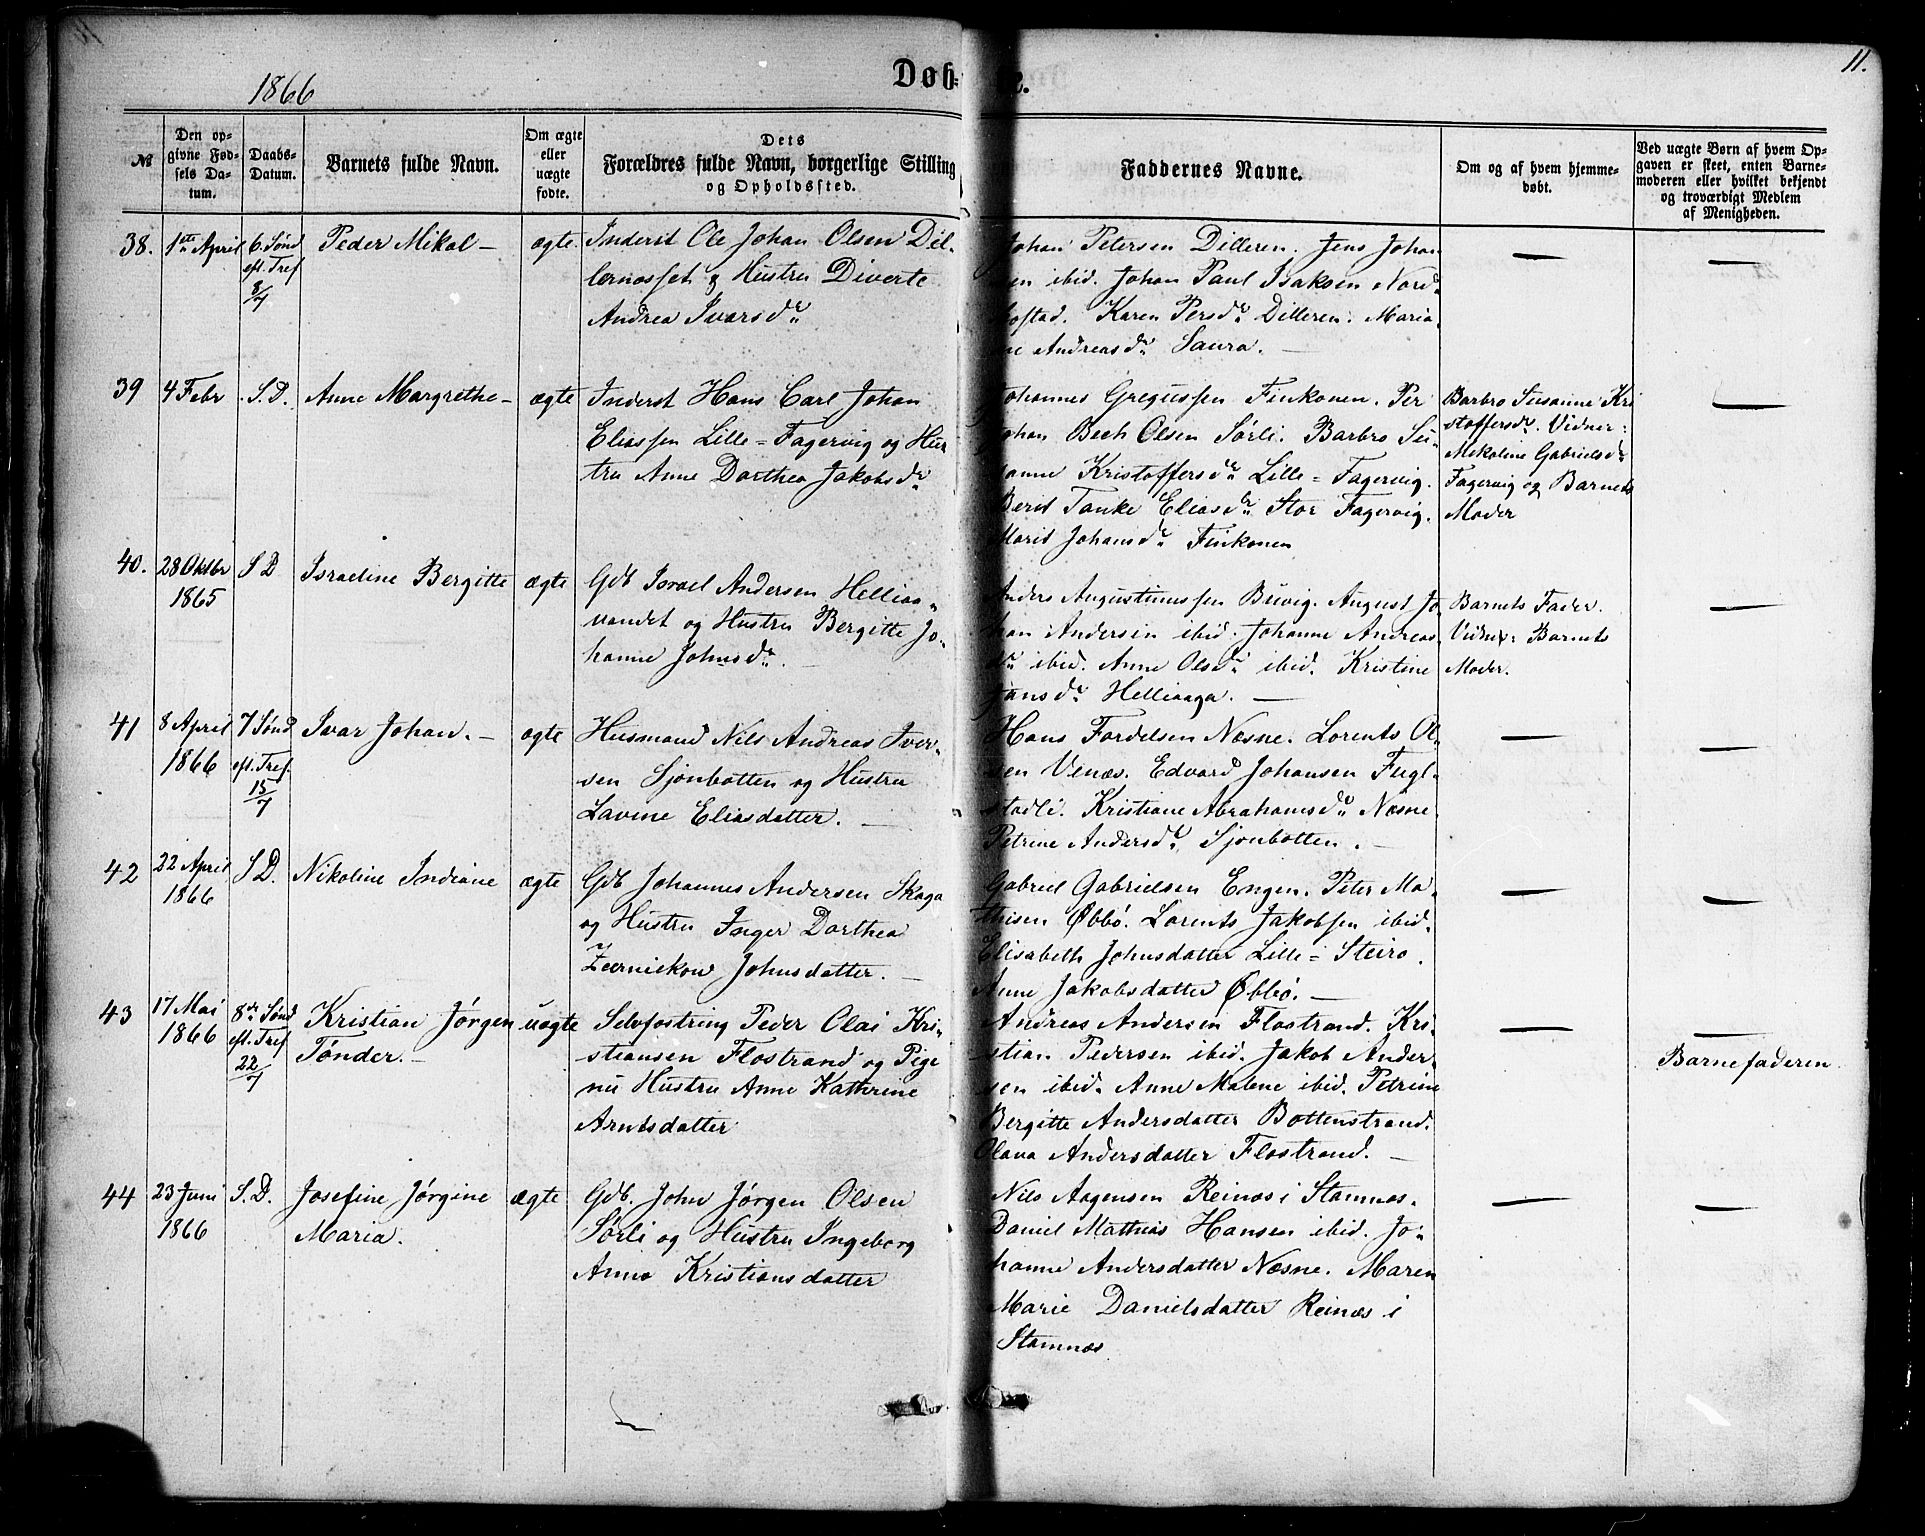 1866
Døb- e.
11.
№
Den op-
givne Fød-
sels Da-
tum.
Daabs-
Datum.
Barnets fulde Navn.
Om ægte
eller
uægte
fødte.
Dets
Forældres fulde Navn, borgerlige Stilling
og Opholdssted.
Faddernes Navne.
Om og af hvem hjemme-
døbt.
Ved uægte Børn af hvem Op-
gaven er skeet, enten Barne-
moderen eller hvilket bekjendt
og troværdigt Medlem
af Menigheden.
38.
1ste April
6. Sønd
eft. Tref
8/7
Peder Mikal –
ægte
Inderst Ole Johan Olsen Dil-
lernæsset & Hustru Diverte
Andrea Ivarsdr
Johan Petersen Dilleren. Jens Johan
sen ibid. Johan Paul Isaksen Nord-
bostad. Karen Persdr Dilleren. Maria-
ne Andreasdr Saura. –
39
4 Febr
S. D.
Anne Margrethe –
ægte
Inderst Hans Carl Johan
Eliassen Lille = Fagervig og Hus
tru Anne Dorthea Jakobsdr
Johannes Gregussen Finkonen. Per
Johan Bech Olsen Sørli. Barbro Su-
sanne Kristoffersdr Lille = Fagervig.
Berit Tanke Eliasdr Stor Fagervig.
Marit Johansdr Finkonen
Barbro Susanne Kri
stoffersdr. Vidner:
Mekoline Gabrielsdr
Fagervig og Barnets
Moder
40.
28 Oktbr
1865
S D
Israeline Bergitte
ægte
Gdb Israel Andersen Helliaa-
vandet og Hustru Bergitte Jo-
hanne Johnsdr. –
Anders Augustinussen Buvig. August Jo
han Andersen ibid. Johanne Andreas-
dr ibid. Anne Olsdr ibid. Kristine
Jansdr Helliaaga. –
Barnets Fader.
Vidner: Barnets
Moder.
41
8 April
1866
7 Sønd
eft. Tref.
15/7
Ivar Johan. –
ægte
Husmand Nils Andreas Iver-
sen Sjonbotten og Hustru
Lavine Eliasdatter. –
Hans Fordelsen Næsne. Lorents Ol-
sen Venæs. Edvard Johansen Fugl-
stadli. Kristiane Abrahamsdr Næsne.
Petrine Andersdr Sjonbotten. –
42
22 April
1866
S D.
Nikoline Indiane
ægte
Gdb Johannes Andersen Skaga
og Hustru Inger Dorthea
Zernickow Johnsdatter. –
Gabriel Gabrielsen Engen. Peter Ma-
thisen Øbbø. Lorents Jakobsen ibid.
Elisabeth Johnsdatter Lille = Steiro.
Anne Jakobsdatter Øbbø. –
43
17 Mai
1866
8de Sønd
eft. Tref
22/7
Kristian Jørgen
Tønder. –
uægte
Selvfostring Peder Olai Kri-
stiansen Flostrand og Pige
nu Hustru Anne Kathrine
Arntsdatter
Andreas Andersen Flostrand. Kri-
stian Pedersen ibid. Jakob Ander-
sen ibid. Anne Malene ibid. Petrine
Bergitte Andersdatter Bottenstrand.
Olava Andersdatter Flostrand. –
Barnefaderen
44
23 Juni
1866
S. D.
Josefine Jørgine
Maria.
ægte
Gdb. John Jørgen Olsen
Sørli og Hustru Ingeborg
Anna Kristiansdatter
Nils Aagensen Reinæs i Stamnæs.
Daniel Mathias Hansen ibid. Jo-
hanne Andersdatter Næsne. Maren
Marie Danielsdatter Reinæs i
Stamnæs